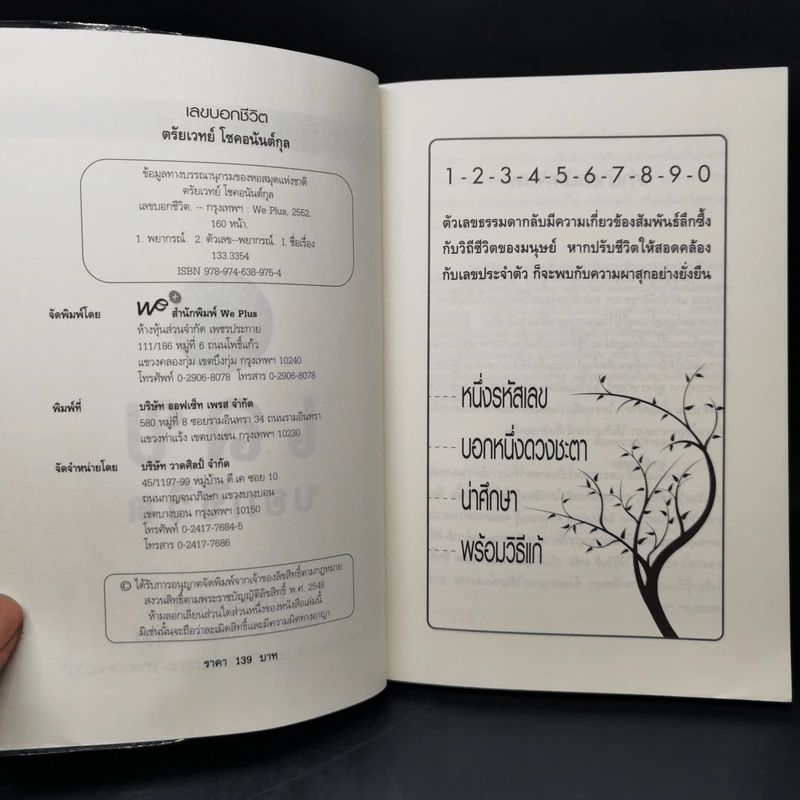 เลขบอกชีวิต
ตรัยเวทย์ โชคอนันต์กุล
ข้อมูลทางบรรณานุกรมของหอสมุดแห่งชาติ
ตรัยเวทย์ โชคอนันต์กุล
เลขบอกชีวิต. -- กรุงเทพฯ : We Plus, 2552.
160 หน้า.
1. พยากรณ์. 2. ตัวเลข--พยากรณ์. 1. ชื่อเรื่อง
133.3354
ISBN 978-974-638-975-4
จัดพิมพ์โดย we+ สำนักพิมพ์ We Plus
ห้างหุ้นส่วนจำกัด เพชรประกาย
111/186 หมู่ที่ 6 ถนนโพธิ์แก้ว
แขวงคลองกุ่ม เขตบึงกุ่ม กรุงเทพฯ 10240
โทรศัพท์ 0-2906-8078 โทรสาร 0-2906-8078
พิมพ์ที่ บริษัท ออฟเซ็ท เพรส จำกัด
580 หมู่ที่ 8 ซอยรามอินทรา 34 ถนนรามอินทรา
แขวงท่าแร้ง เขตบางเขน กรุงเทพฯ 10230
จัดจำหน่ายโดย บริษัท วาดศิลป์ จำกัด
45/1197-99 หมู่บ้าน ดี.เค ซอย 10
ถนนกาญจนาภิเษก แขวงบางบอน
เขตบางบอน กรุงเทพฯ 10150
โทรศัพท์ 0-2417-7684-5
โทรสาร 0-2417-7686
© ได้รับการอนุญาตจัดพิมพ์จากเจ้าของลิขสิทธิ์ตามกฎหมาย
สงวนสิทธิ์ตามพระราชบัญญัติลิขสิทธิ์ พ.ศ. 2548
ห้ามลอกเลียนส่วนใดส่วนหนึ่งของหนังสือเล่มนี้
มิเช่นนั้นจะถือว่าละเมิดสิทธิ์และมีความผิดทางอาญา
ราคา 139 บาท
1-2-3-4-5-6-7-8-9-0
ตัวเลขธรรมดากลับมีความเกี่ยวข้องสัมพันธ์ลึกซึ้ง
กับวิถีชีวิตของมนุษย์ หากปรับชีวิตให้สอดคล้อง
กับเลขประจำตัว ก็จะพบกับความผาสุกอย่างยั่งยืน
หนึ่งรหัสเลข
บอกหนึ่งดวงชะตา
น่าศึกษา
พร้อมวิธีแก้